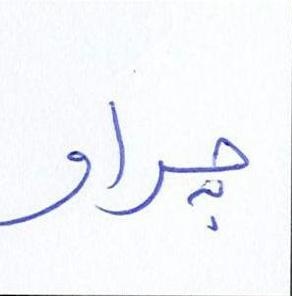 چراو